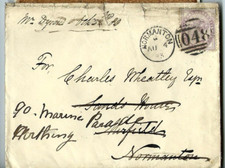 NORMANTON
048
For
Charles Wheatley Esqr
Sands House
90. Marine Parade
Mirfield
Worthing
Normanton